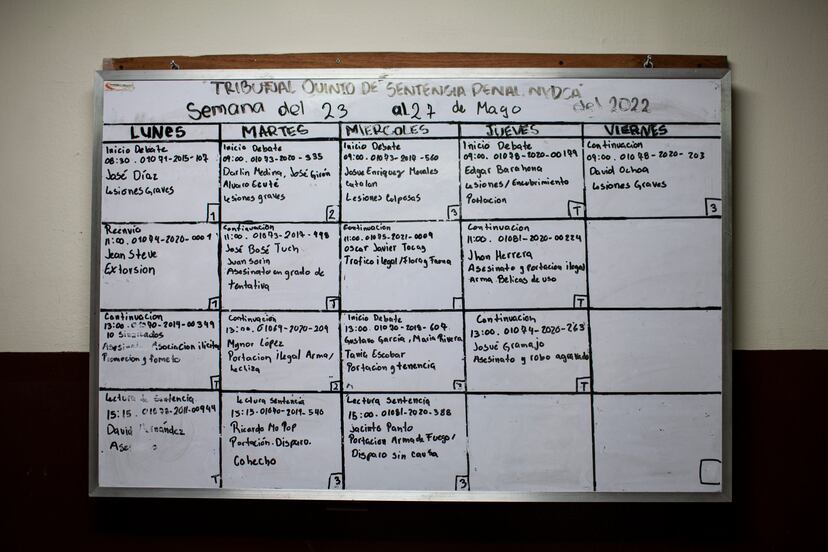 TRIBUNAL QUINTO DE SENTENCIA PENAL
Semana del 23 al 27 de Mayo del 2022
LUNES
Inicio Debate
08:30. 01071-2015-107
José Díaz
Lesiones Graves
1
Reenvio
11:00. 01074-2020-
Jean Steve
Extorsion
1
Continuacion
13:00
10 Sindicados
Asociacion ilicita
T
Lectura de Sentencia
15:15
David
T
MARTES
Inicio Debate
09:00. 01073-2020-335
Darlin Medina, José Girón
Alvaro
Lesiones graves
2
Continuacion
11:00. 01073-2017-
José Tuch
Juan
Asesinato en grado de
tentativa
T
Continuación
13:00. 01069-2020-209
Mynor López
Portacion ilegal Arma/
2
Lectura Sentencia
15:15. 01070-2019-540
Ricardo Mo Pop
Portación. Disparo.
Cohecho
3
MIERCOLES
Inicio Debate
09:00. 01073-2019-560
Josue Enriquez Morales
Catalan
Lesiones Culposas
3
Continuacion
11:00. 01075-2021-0009
Oscar Javier
Trafico ilegal/Flora y Fauna
Inicio Debate
13:00. 01030-2018-604
Gustavo García, Maria Rivera
Tania Escobar
Portacion y tenencia
Lectura Sentencia
15:00. 01081-2020-388
Jacinto
Portacion Arma de Fuego/
Disparo sin causa
3
JUEVES
Inicio Debate
09:00. 01078-2020-00179
Edgar Barahona
Lesiones/Encubrimiento
Portacion
T
Continuacion
11:00. 01081-2020-00224
Jhon Herrera
Asesinato y Portacion ilegal
Arma Belicas de uso
T
Continuacion
13:00. 01074-2020-263
Josué Granajo
Asesinato y robo agravado
T
VIERNES
Continuacion
09:00. 01078-2020-203
David Ochoa
Lesiones Graves
3